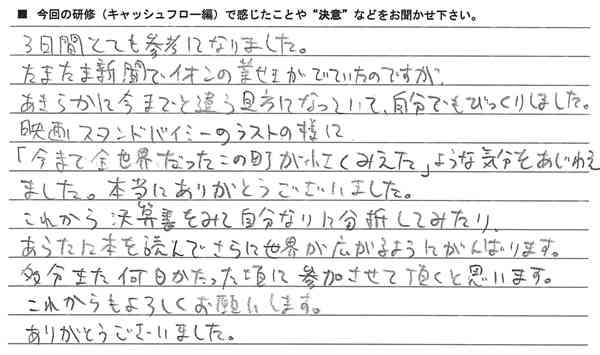 ■ 今回の研修（キャッシュフロー編）で感じたことや“決意”などをお聞かせ下さい。
3日間とても参考になりました。
たまたま新聞でイオンの業せきがでていたのですが、
あきらかに今までと違う見方になっていて、自分でもびっくりしました。
映画スタンドバイミーのラストの様に
「今まで全世界だったこの町が小さくみえた」ような気分をあじわえ
ました。本当にありがとうございました。
これから決算書をみて自分なりに分析してみたり、
あらたに本を読んでさらに世界が広がるようにがんばります。
多分また何日かたった頃に参加させて頂くと思います。
これからもよろしくお願いします。
ありがとうございました。